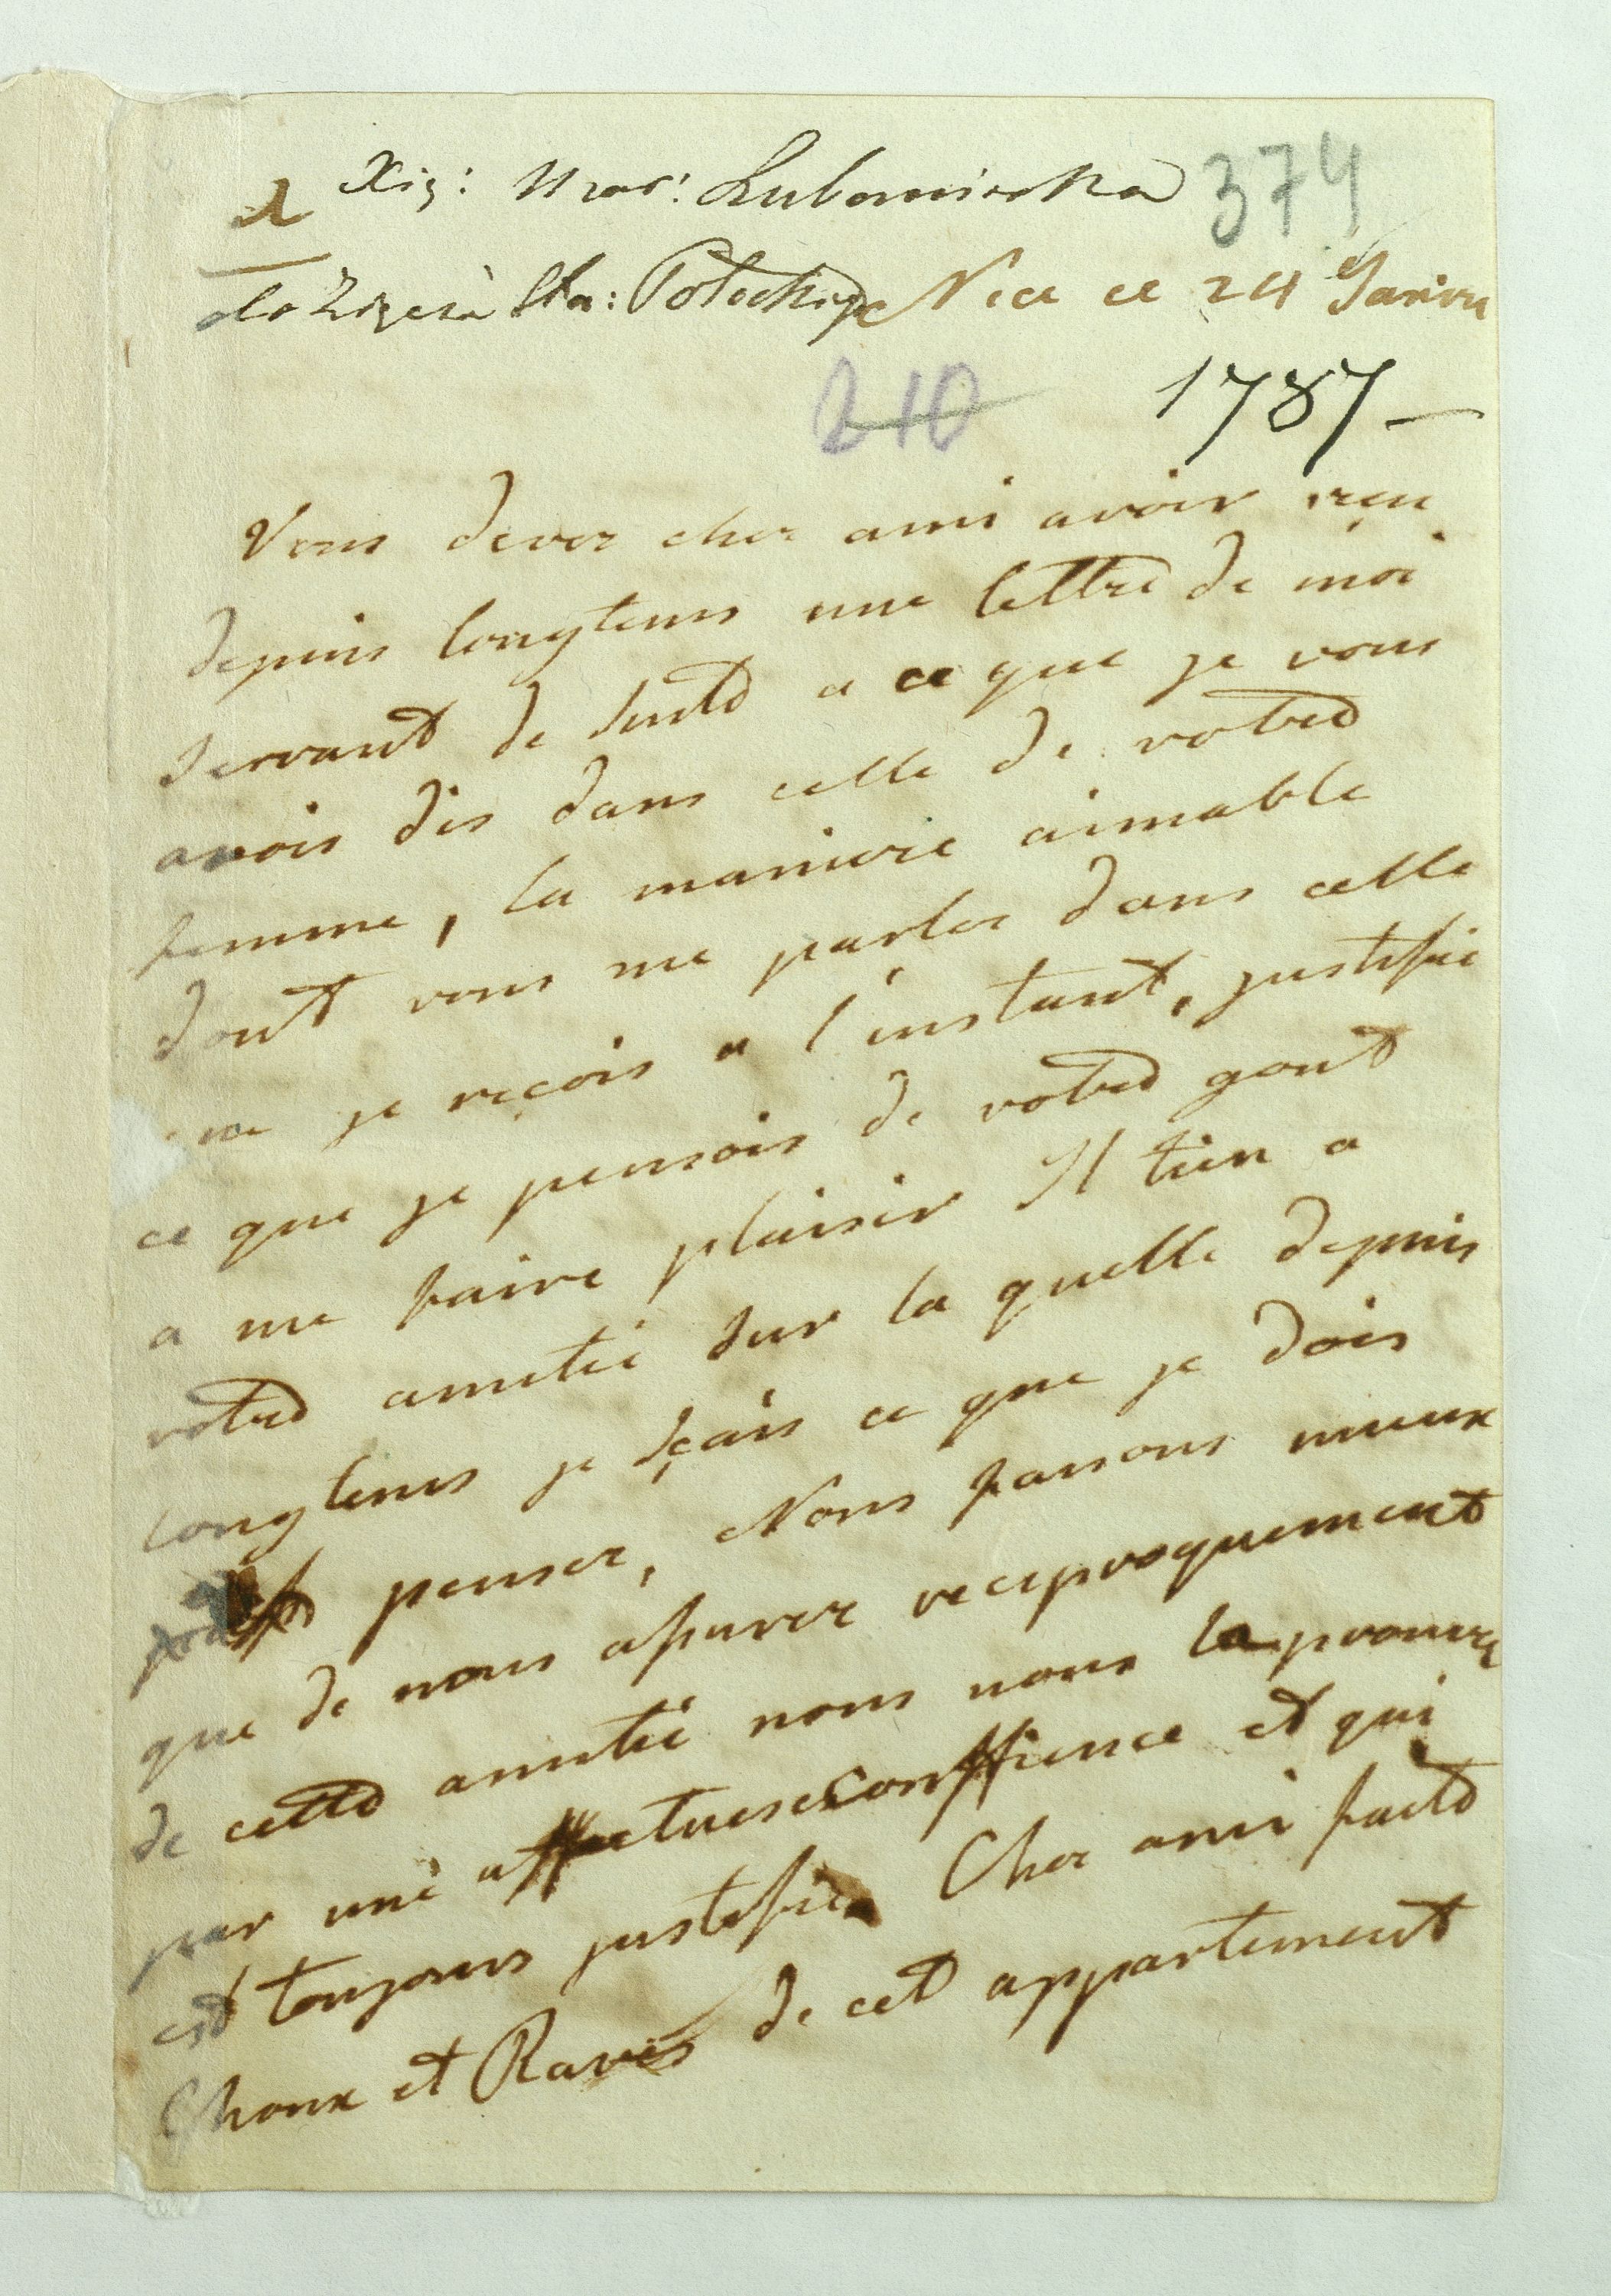 Xię: Mar: Lubomirska 374
do Zięcia Sta: Potockiego Nice ce 24 Janvier
210 1787 –
Vous devez cher ami avoir reçu
depuis longtems une lettre de moi
servant de suite a ce que je vous
avois dis dans celle de votre
femme, la maniere aimable
dont vous me parlez dans celle
que je reçois a l'instant, justifie
ce que je pensois de votre gout
a me faire plaisir Il tien a
votre amitié sur la quelle depuis
longtems je sçais ce que je dois
penser, Nous faisons mieux
que de nous assurer reciproquement
de cette amitié nous nous la prouvons
par une affectueuse conffience et qui
est toujours justifiée Cher ami faite
Choux et Raves de cet appartement